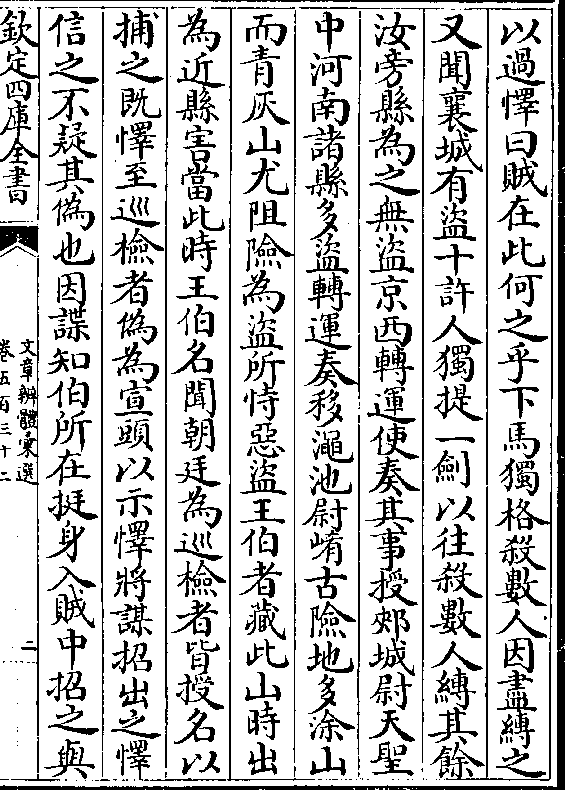 以過懌曰賊在此何之乎下馬獨格殺數人因盡縛之
又聞襄城有盜十許人獨提一劍以往殺數人縛其餘
汝旁縣為之無盜京西轉運使奏其事授郟城尉天聖
中河南諸縣多盜轉運奏移澠池尉崤古險地多涂山
而青灰山尤阻險為盜所恃惡盜王伯者藏此山時出
為近縣害當此時王伯名聞朝廷為巡檢者皆授名以
捕之既懌至巡檢者偽為宣頭以示懌將謀招出之懌
信之不疑其偽也因諜知伯所在挺身入賊中招之與
欽定四庫全書
文章辨體彙選
卷五百三十二
二